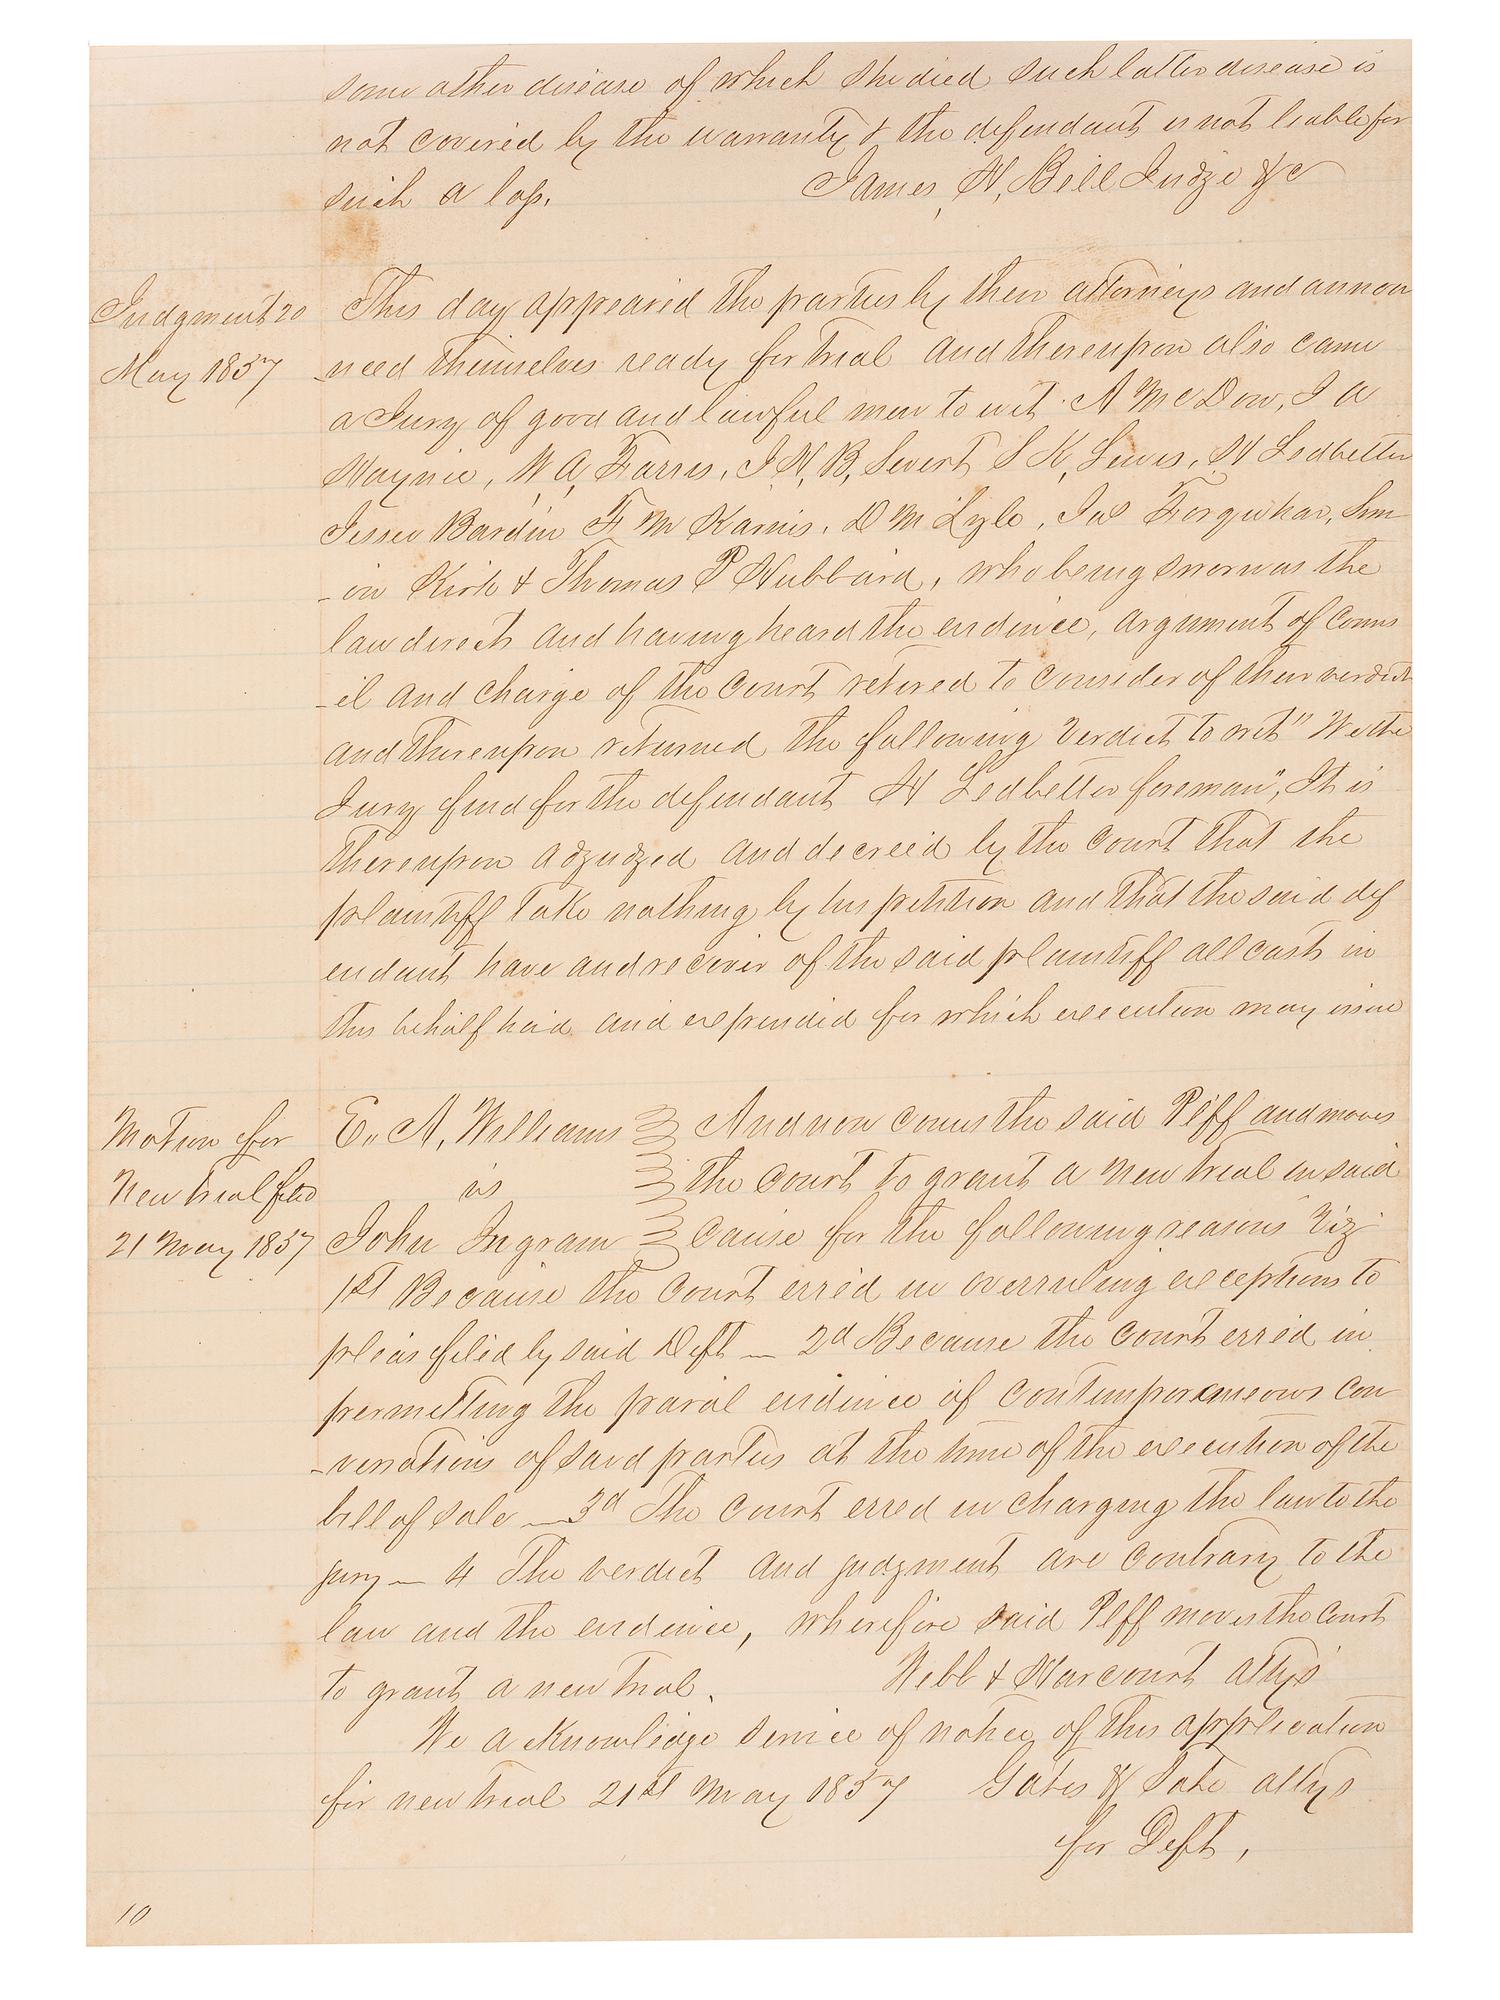 some other disease of which she died such latter disease is
not covered by the warranty & the defendant is not liable for
such a loss.
James, H, Bell Judge &c
Judgment 20
May 1857
This day appeared the parties by their attorneys and annou
nced themselves ready for trial and thereupon also came
a Jury of good and lawful men to wit A McDow, J A
Haynie, W A, Farris, J, H, B, Severt S K, Lewis, H Ledbetter
Jesse Bardin F M Karnis, D M Lyle, Jas Forguhar, Sim
-on Kirk & Thomas P Hubbard, who being sworn as the
law directs and having heard the evidence, argument of Couns
-el and charge of the Court retired to consider of their verdict
and thereupon returned the following verdict to wit" We the
Jury find for the defendant H Ledbetter foreman", It is
thereupon adjudged and decreed by the Court that the
plaintiff take nothing by his petition and that the said def
endant have and recover of the said plaintiff all costs in
this behalf had and expended for which execution may issue
Motion for
New trial filed
21 May 1857
E. A, Williams And now comes the said Plff and moves
vs the Court to grant a new trial in said
John Ingram Cause for the following reasons Viz
1st Because the Court erred in overruling exceptions to
pleas filed by said Deft — 2d Because the Court erred in
permitting the parol evidence of Contemporaneous Con
-versations of said parties at the time of the execution of the
bill of sale — 3d The Court erred in charging the law to the
jury — 4 The verdict and judgment are contrary to the
law and the evidence, wherefore said Plff moves the Court
to grant a new trial. Webb & Harcourt attys
We acknowledge service of notice of this application
for new trial 21st May 1857 Gates & Tate attys
for Deft,
10